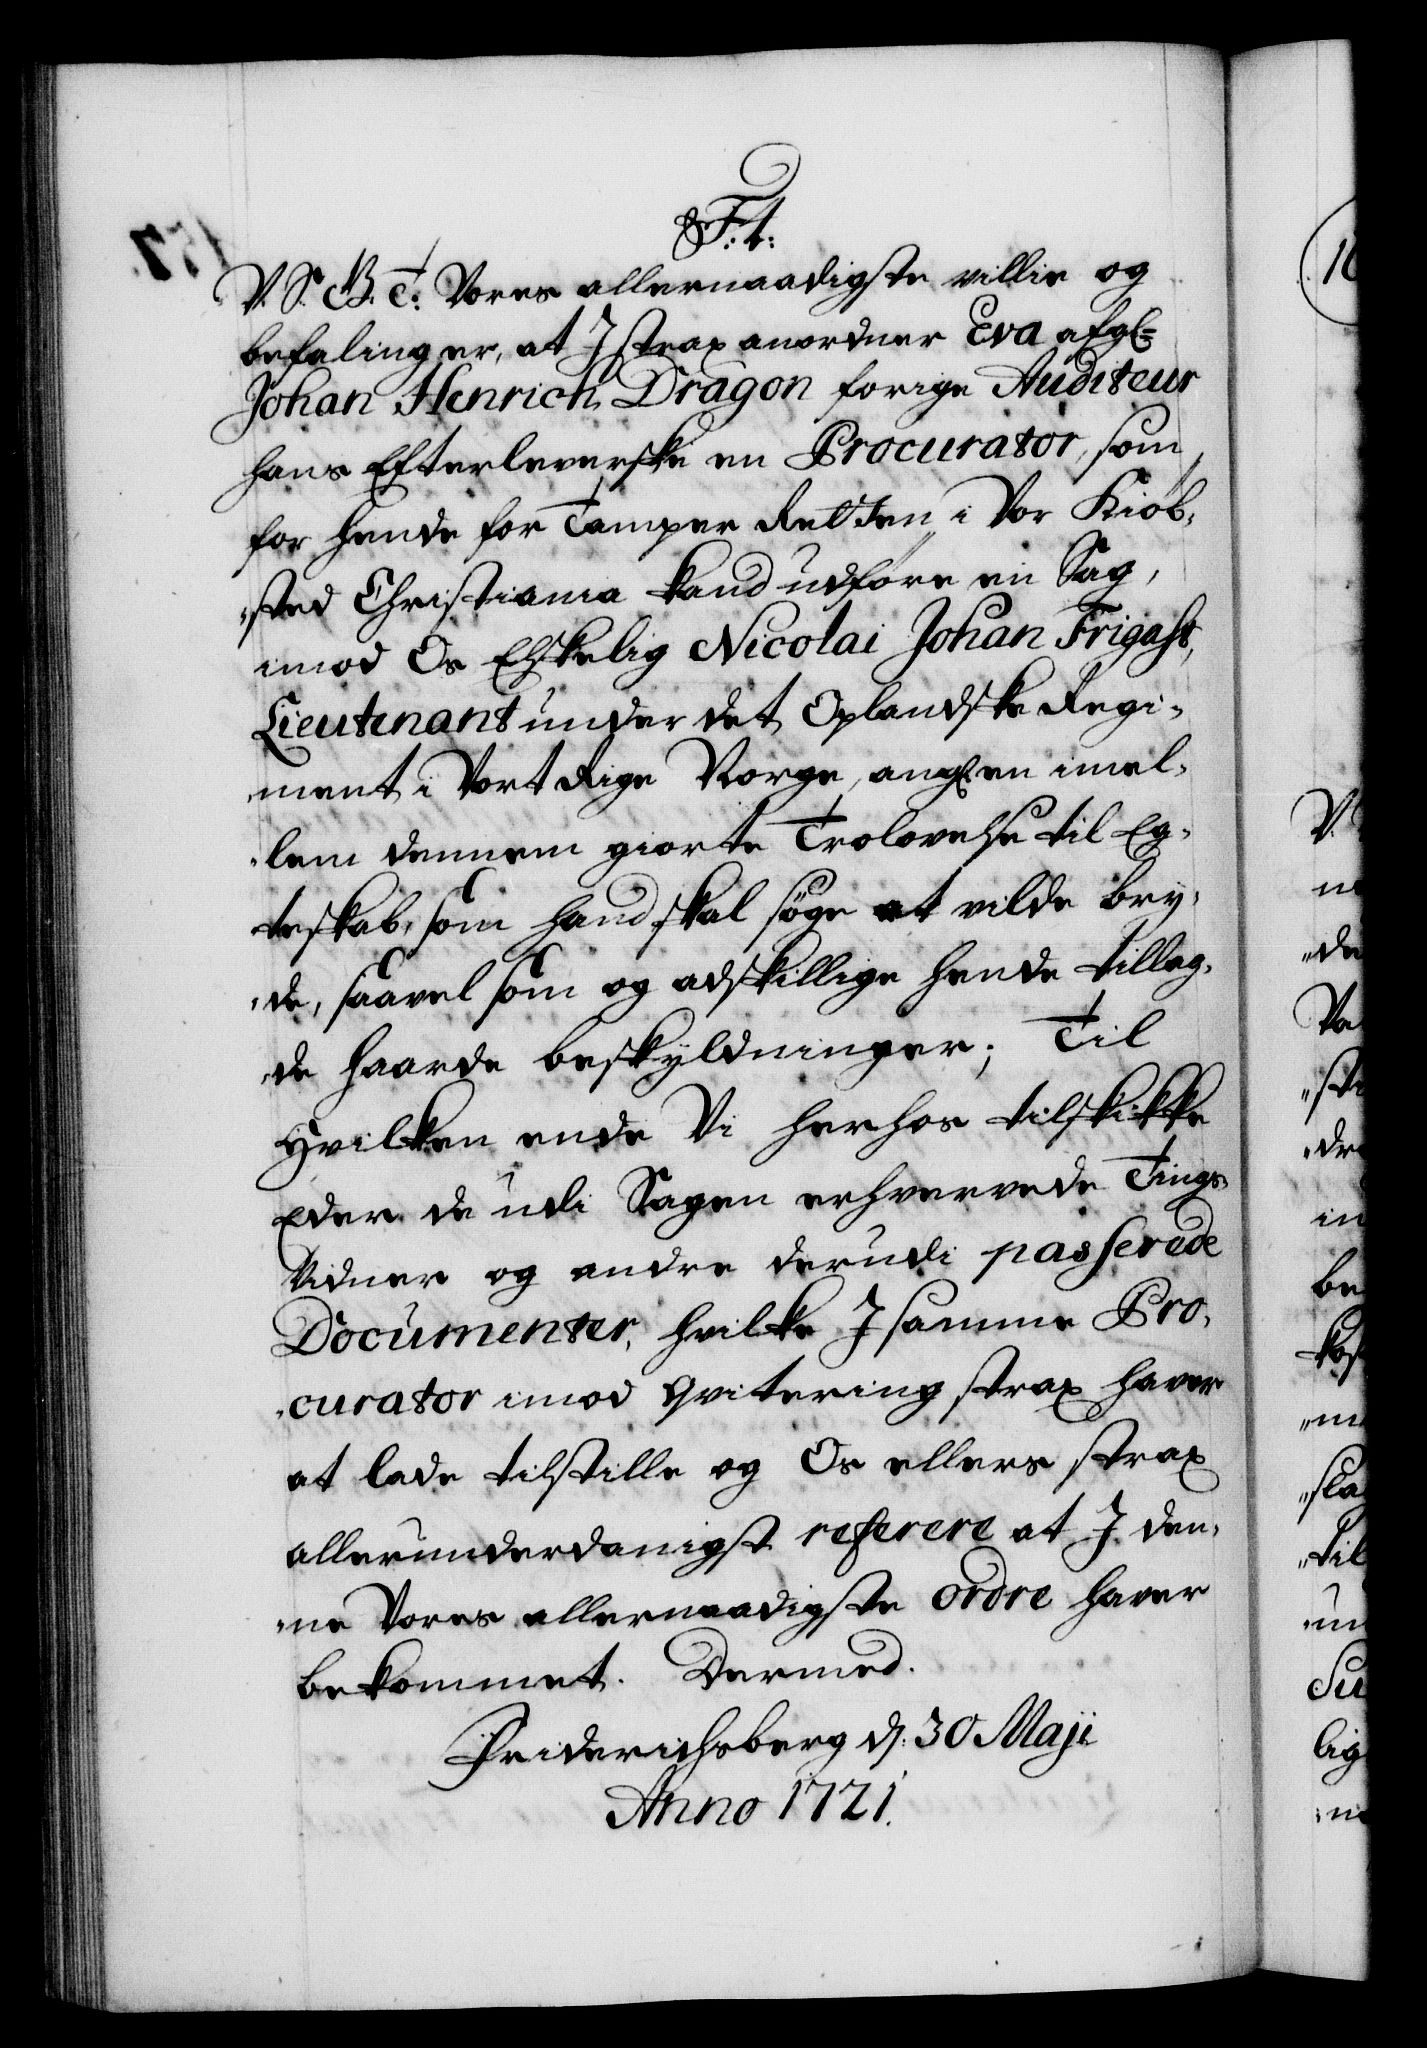 F. 4.
V. S. G. B. T: Vores allernaadigste villie og
befaling er, at I strax anordner Eva afgl=
Johan Henrich Dragon forige Auditeur
hans Efterleverske en Procurator, som
for hende for Tamper Retten i Vor Kiøb,
,sted Christiania kand udføre en Sag,
imod Os Elskelig Nicolai Johan Frigast,
Lieutenant under det Oplandske Regi,
,ment i Vort Rige Norge, angl. en imel,
,lem dennem giorte Trolovelse til Eg,
teskab, som hand skal søge at vilde bry,
,de, saavel som og adskillige hende tillag,
,de haarde beskyldninger; Til
Hvilken ende Vi herhos tilskikke
Eder de udi Sagen erhvervede Tings,
Vidner og andre derudi passerede
Documenter, hvilke I samme Pro,
,curator imod Qvitering strax haver
at lade tilstille og Os ellers strax
allerunderdanigst referere at I den,
,ne Vores allernaadigste ordre haver
bekommet. Dermed.
Friderichsberg d: 30 Maji
Anno 1721.